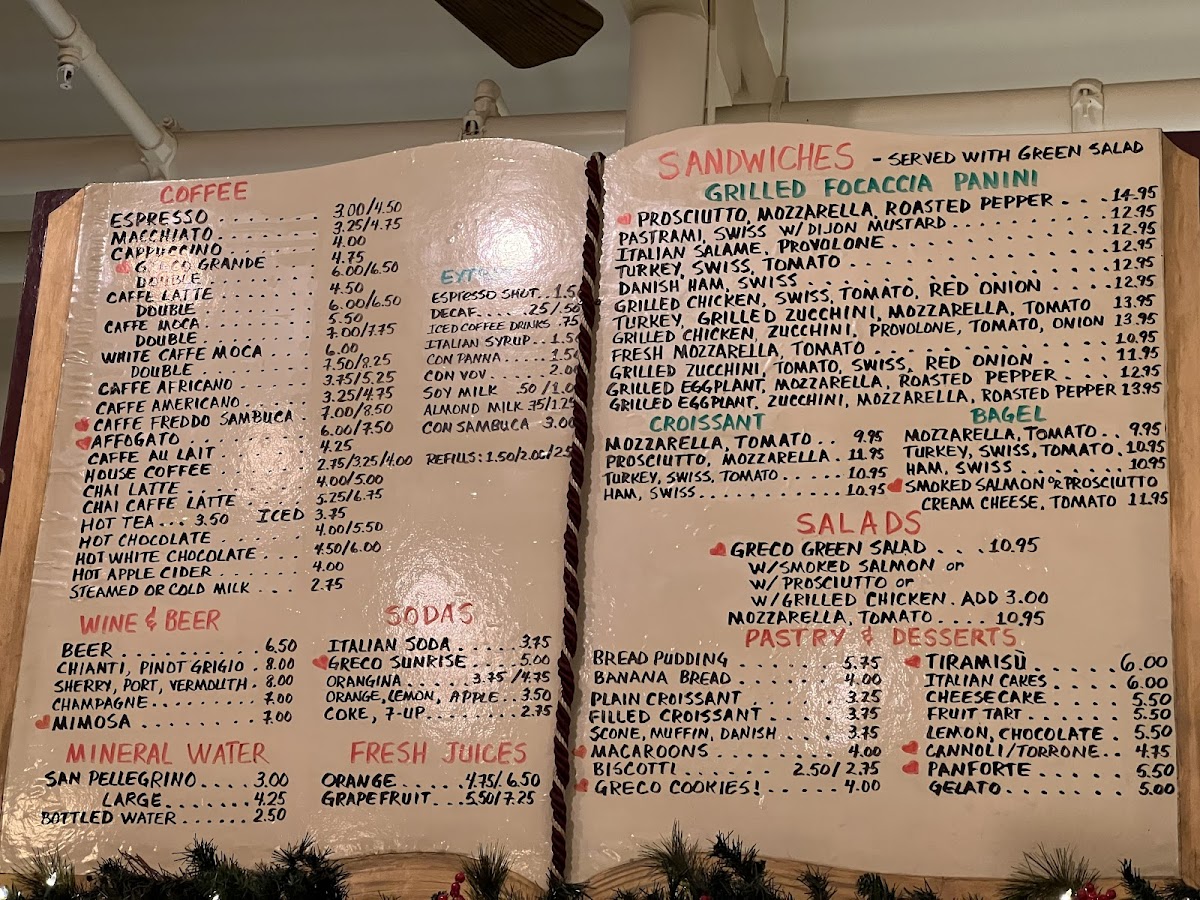 COFFEE
ESPRESSO ........ 3.00/4.50
MACCHIATO ....... 3.25/4.75
CAPPUCCINO ...... 4.00
GRECO GRANDE ... 4.75
DOUBLE ....... 6.00/6.50
CAFFE LATTE ....... 4.50
DOUBLE ....... 6.00/6.50
CAFFE MOCA ....... 5.50
DOUBLE ....... 7.00/7.75
WHITE CAFFE MOCA ... 6.00
DOUBLE ....... 7.50/8.25
CAFFE AFRICANO ..... 3.75/5.25
CAFFE AMERICANO .... 3.25/4.75
CAFFE FREDDO SAMBUCA 7.00/8.50
AFFOGATO ........ 6.00/7.50
CAFFE AU LAIT ...... 4.25
HOUSE COFFEE ...... 2.75/3.25/4.00
CHAI LATTE ....... 4.00/5.00
CHAI CAFFE LATTE .... 5.25/6.75
HOT TEA... 3.50 ICED 3.75
HOT CHOCOLATE ..... 4.00/5.50
HOT WHITE CHOCOLATE ... 4.50/6.00
HOT APPLE CIDER ...... 4.00
STEAMED OR COLD MILK ... 2.75
ESPRESSO SHOT.. 1.5
DECAF..... .25/.50
ICED COFFEE DRINKS .75
ITALIAN SYRUP.. 1.50
CON PANNA... 1.50
CON VOV..... 2.00
SOY MILK .50/1.00
ALMOND MILK .75/1.25
CON SAMBUCA 3.00
REFILLS: 1.50/2.00/25
WINE & BEER
BEER ............ 6.50
CHIANTI, PINOT GRIGIO . 8.00
SHERRY, PORT, VERMOUTH . 8.00
CHAMPAGNE........ 7.00
MIMOSA .......... 7.00
SODAS
ITALIAN SODA ..... 3.75
GRECO SUNRISE .... 5.00
ORANGINA..... 3.75/4.75
ORANGE, LEMON, APPLE.. 3.50
COKE, 7-UP........ 2.75
MINERAL WATER
SAN PELLEGRINO.... 3.00
LARGE....... 4.25
BOTTLED WATER...... 2.50
FRESH JUICES
ORANGE..... 4.75/6.50
GRAPEFRUIT... 5.50/7.25
SANDWICHES - SERVED WITH GREEN SALAD
GRILLED FOCACCIA PANINI
PROSCIUTTO, MOZZARELLA, ROASTED PEPPER ... 14.95
PASTRAMI, SWISS W/ DIJON MUSTARD ......... 12.95
ITALIAN SALAME, PROVOLONE ............ 12.95
TURKEY, SWISS, TOMATO ............. 12.95
DANISH HAM, SWISS ................ 12.95
GRILLED CHICKEN, SWISS, TOMATO, RED ONION .... 12.95
TURKEY, GRILLED ZUCCHINI, MOZZARELLA, TOMATO 13.95
GRILLED CHICKEN, ZUCCHINI, PROVOLONE, TOMATO, ONION 13.95
FRESH MOZZARELLA, TOMATO ............. 10.95
GRILLED ZUCCHINI, TOMATO, SWISS, RED ONION .... 11.95
GRILLED EGGPLANT, MOZZARELLA, ROASTED PEPPER ... 12.95
GRILLED EGGPLANT, ZUCCHINI, MOZZARELLA, ROASTED PEPPER 13.95
CROISSANT
MOZZARELLA, TOMATO .. 9.95
PROSCIUTTO, MOZZARELLA . 11.95
TURKEY, SWISS, TOMATO .... 10.95
HAM, SWISS........... 10.95
BAGEL
MOZZARELLA, TOMATO.. 9.95
TURKEY, SWISS, TOMATO . 10.95
HAM, SWISS ......... 10.95
SMOKED SALMON OR PROSCIUTTO
CREAM CHEESE, TOMATO 11.95
SALADS
GRECO GREEN SALAD ... 10.95
W/SMOKED SALMON or
W/PROSCIUTTO or
W/GRILLED CHICKEN. ADD 3.00
MOZZARELLA, TOMATO..... 10.95
PASTRY & DESSERTS
BREAD PUDDING ....... 5.75
BANANA BREAD ....... 4.00
PLAIN CROISSANT ...... 3.25
FILLED CROISSANT ..... 3.75
SCONE, MUFFIN, DANISH .... 3.75
MACAROONS ........ 4.00
BISCOTTI ...... 2.50/2.75
GRECO COOKIES! ..... 4.00
TIRAMISÙ ....... 6.00
ITALIAN CAKES ..... 6.00
CHEESECAKE ..... 5.50
FRUIT TART ...... 5.50
LEMON, CHOCOLATE . 5.50
CANNOLI/TORRONE.. 4.75
PANFORTE ....... 5.50
GELATO......... 5.00